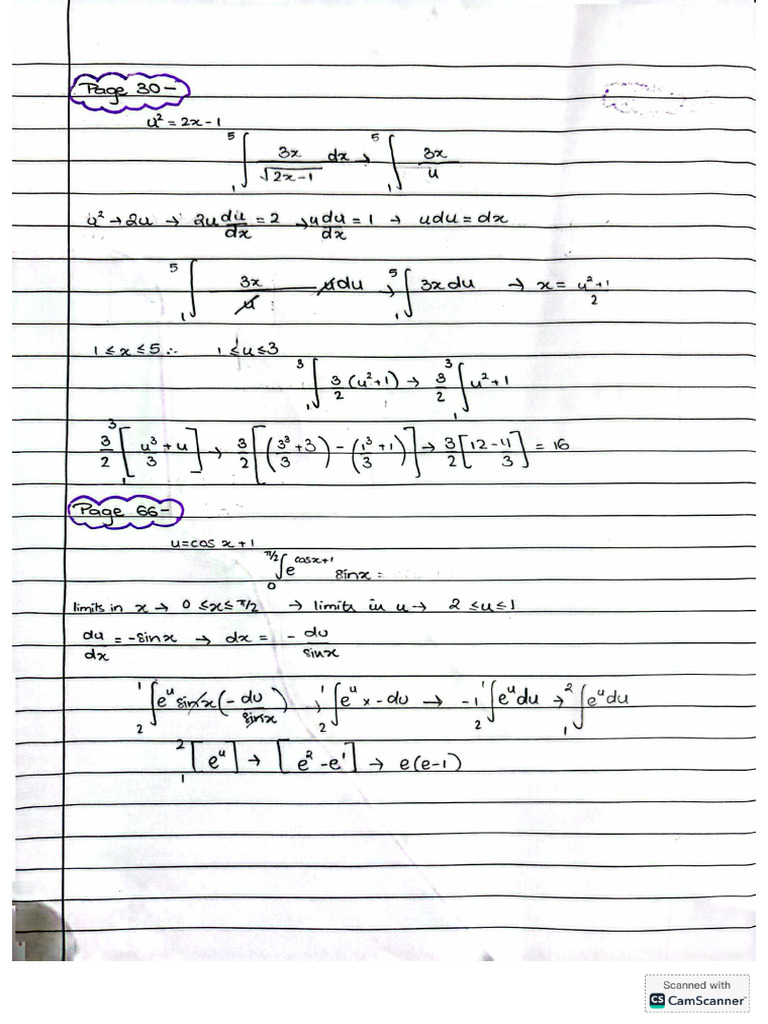 Page 30-
u² = 2x-1
₁∫⁵ 3x/√(2x-1) dx → ₁∫⁵ 3x/u
u² → 2u → 2u du/dx = 2 → u du/dx = 1 → udu = dx
₁∫⁵ 3x/u udu → ₁∫⁵ 3x du → x = (u²+1)/2
1 ≤ x ≤ 5 ∴ 1 ≤ u ≤ 3
₁∫³ 3/2 (u²+1) → 3/2 ₁∫³ u²+1
3/2 ₁[u³/3 + u]³ → 3/2 [(3³/3 + 3) - (1³/3 + 1)] → 3/2 [12 - 4/3] = 16
Page 66-
u = cos x + 1
₀∫^(π/2) e^(cosx+1) sinx =
limits in x → 0 ≤ x ≤ π/2 → limits in u → 2 ≤ u ≤ 1
du/dx = -sinx → dx = - du/sinx
₂∫¹ e^u sinx (- du/sinx) → ₂∫¹ e^u x - du → -1 ₂∫¹ e^u du → ₁∫² e^u du
₁²[e^u] → [e² - e¹] → e(e-1)
Scanned with
CS CamScanner